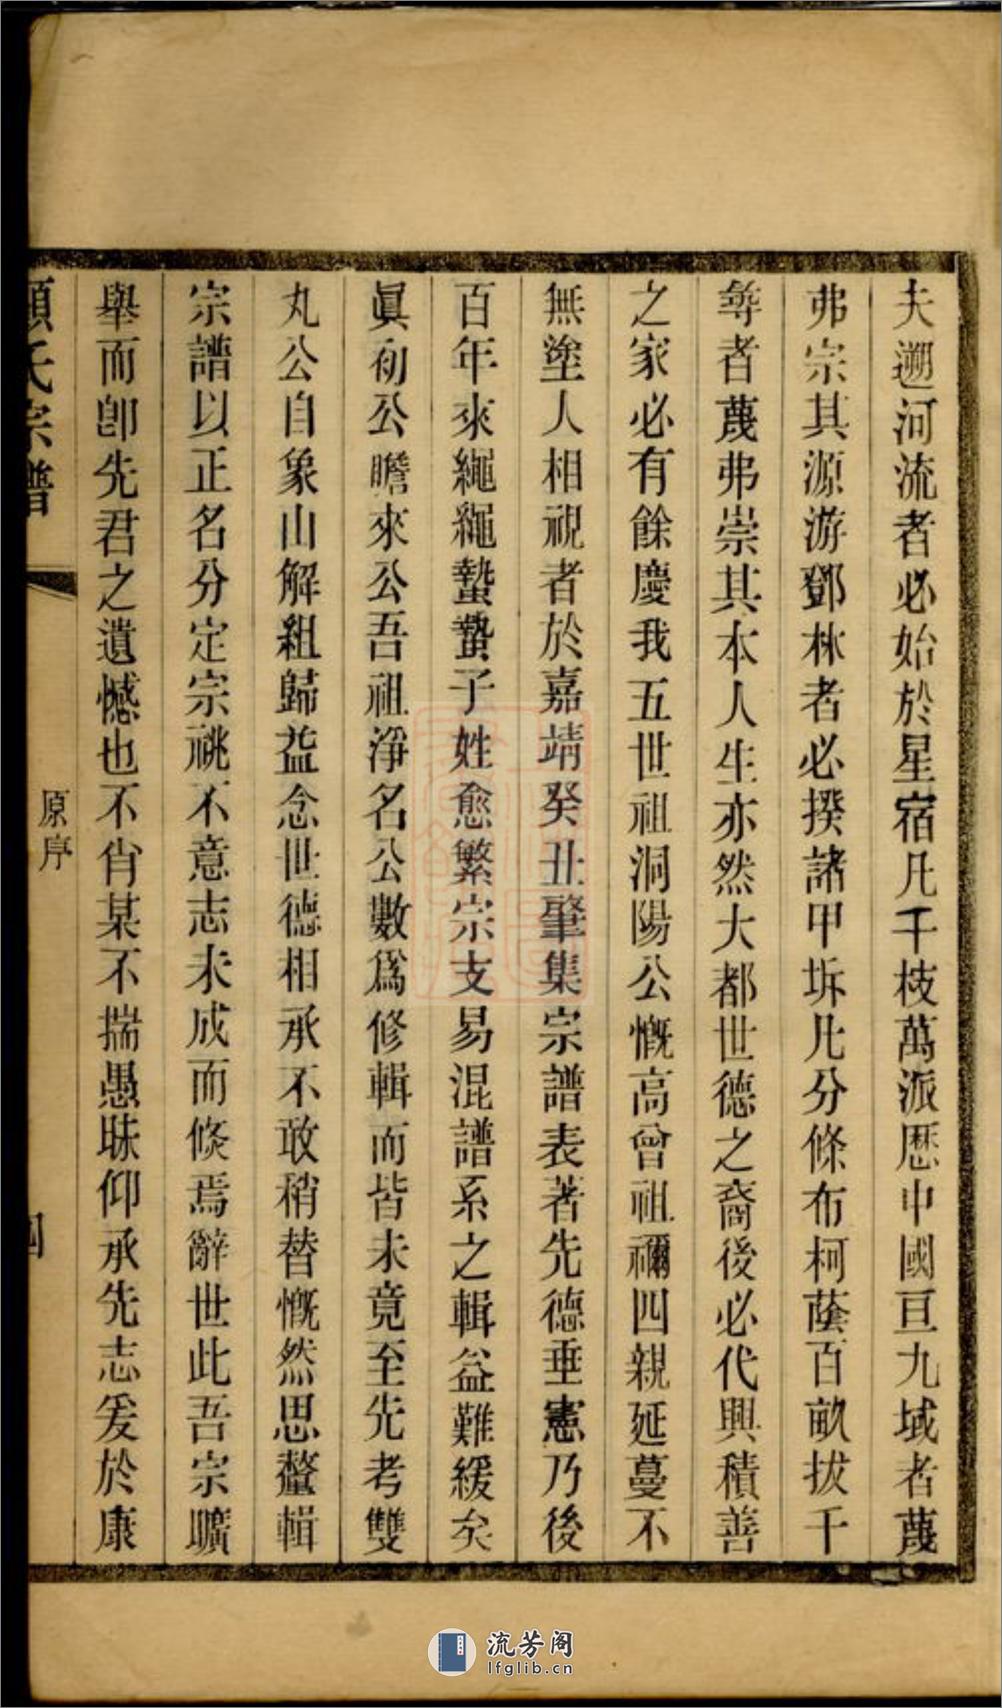 夫遡河流者必始於星宿凡千枝萬派歷中國亘九域者蔑
弗宗其源游鄧林者必揆諸甲坼凡分條布柯蔭百畝拔千
尋者蔑弗崇其本人生亦然大都世德之裔後必代興積善
之家必有餘慶我五世祖洞陽公慨高曾祖禰四親延蔓不
無塗人相視者於嘉靖癸丑肇集宗譜表著先德垂憲乃後
百年來繩繩蟄蟄子姓愈繁宗支易混譜系之輯益難緩矣
眞初公瞻來公吾祖淨名公數爲修輯而皆未竟至先考雙
丸公自象山解組歸益念世德相承不敢稍替慨然思釐輯
宗譜以正名分定宗祧不意志未成而倏焉辭世此吾宗曠
舉而卽先君之遺憾也不肖某不揣愚昧仰承先志爰於康
氏宗譜
原序
四
流芳阁
lfglib.cn